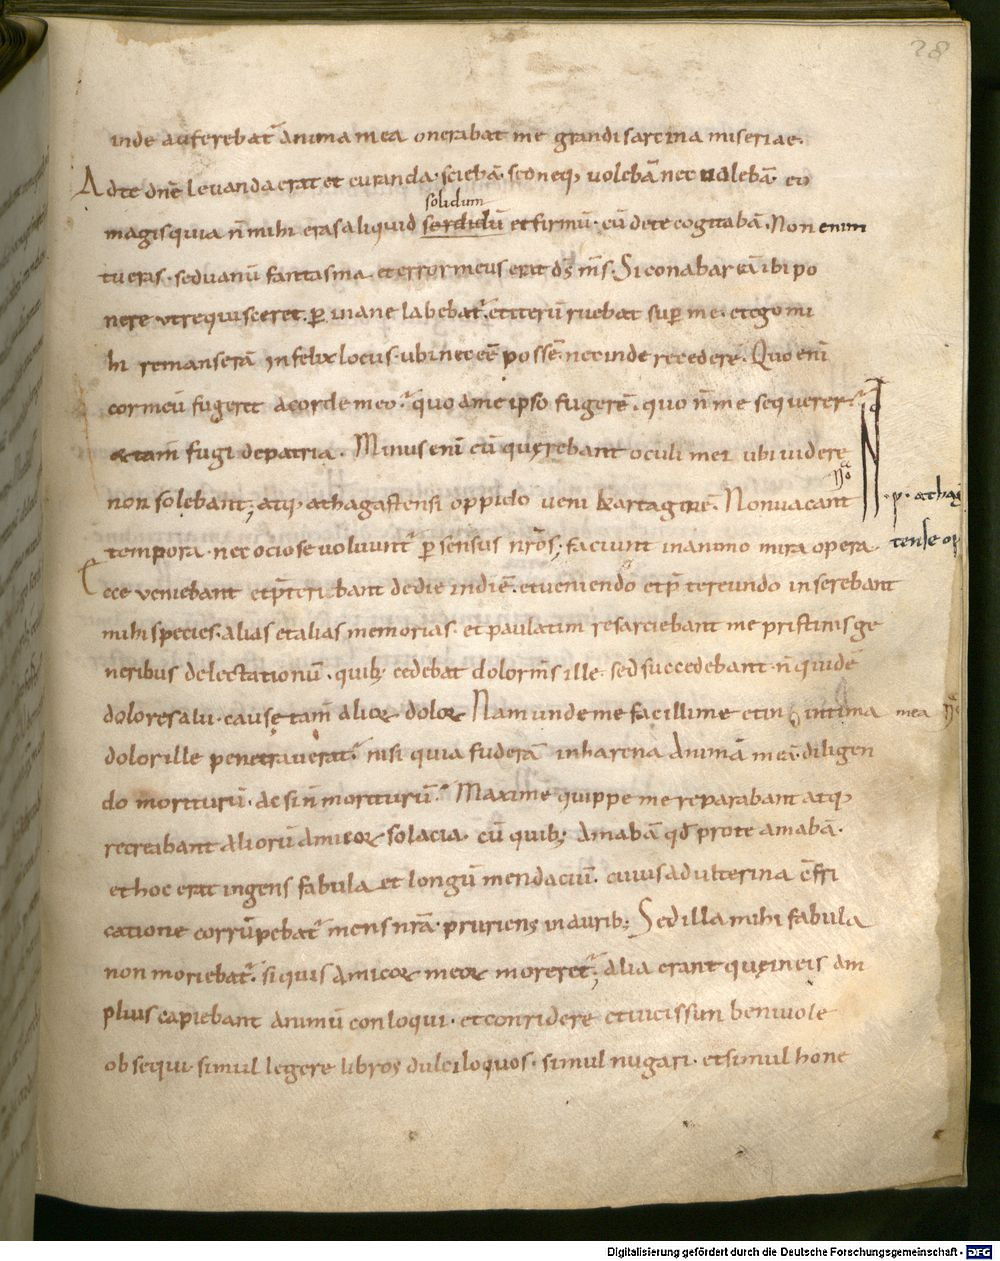 28
inde auferebat᷑ anima mea onerabat me grandi sarcina miseriae.
Ad te dnē levanda erat et curanda. sciebā. sed neq; volebā nec valebā. eo
solidum
magis quia n̄ mihi eras aliquid sordidū et firmū. cū de te cogitabā. Non enim
tu eras. sed vanū fantasma. et error meus erat ds̄ ms̄. Si conabar eā ibi po
nere ut requisceret. ꝑ inane labebat᷑. et iterū ruebat suꝑ me. et ego mi
hi remanserā infelix locus. ubi nec eē possē. nec inde recederē. Quo enī
cor meū fugeret a corde meo? quo a me ipso fugerē. quo n̄ me sequerer?
& tam̄ fugi de patria. Minus enī cū quęrebant oculi mei ubi videre
non solebant; atq; a thagastensi oppido veni kartaginē. Non vacant
.p. athag
tempora. nec ociose volvunt᷑ ꝑ sensus nr̄os; faciunt in animo mira opera.
tense op
Ecce veniebant et p̄teribant de die in diē. et veniendo et p̄tereundo inserebant
mihi species. alias et alias memorias. et paulatim resarciebant me pristinis ge
neribus delectationū. quib; cedebat dolor ms̄ ille. sed succedebant. n̄ quidē
dolores alii. causę tam̄ alioꝝ doloꝝ. Nam unde me facillime et in intima mea
dolor ille penetraverat? nisi quia fuderā in harena animā meā. diligen
do moriturū. ac si n̄ moriturū? Maxime quippe me reparabant atq;
recreabant aliorū amicoꝝ solacia. cū quib; amabā qd̄ pro te amabā.
et hoc erat ingens fabula et longū mendaciū. cuius adulterina c̄fri
catione corrūpebat᷑ mens nr̄a. pruriens in aurib; Sed illa mihi fabula
non moriebat᷑. si quis amicoꝝ meoꝝ moreret᷑; alia erant quę in eis am
plius capiebant animū. conloqui. et conridere et vicissim benivole
obsequi. simul legere libros dulciloquos. simul nugari. et simul hone
Digitalisierung gefördert durch die Deutsche Forschungsgemeinschaft - DFG